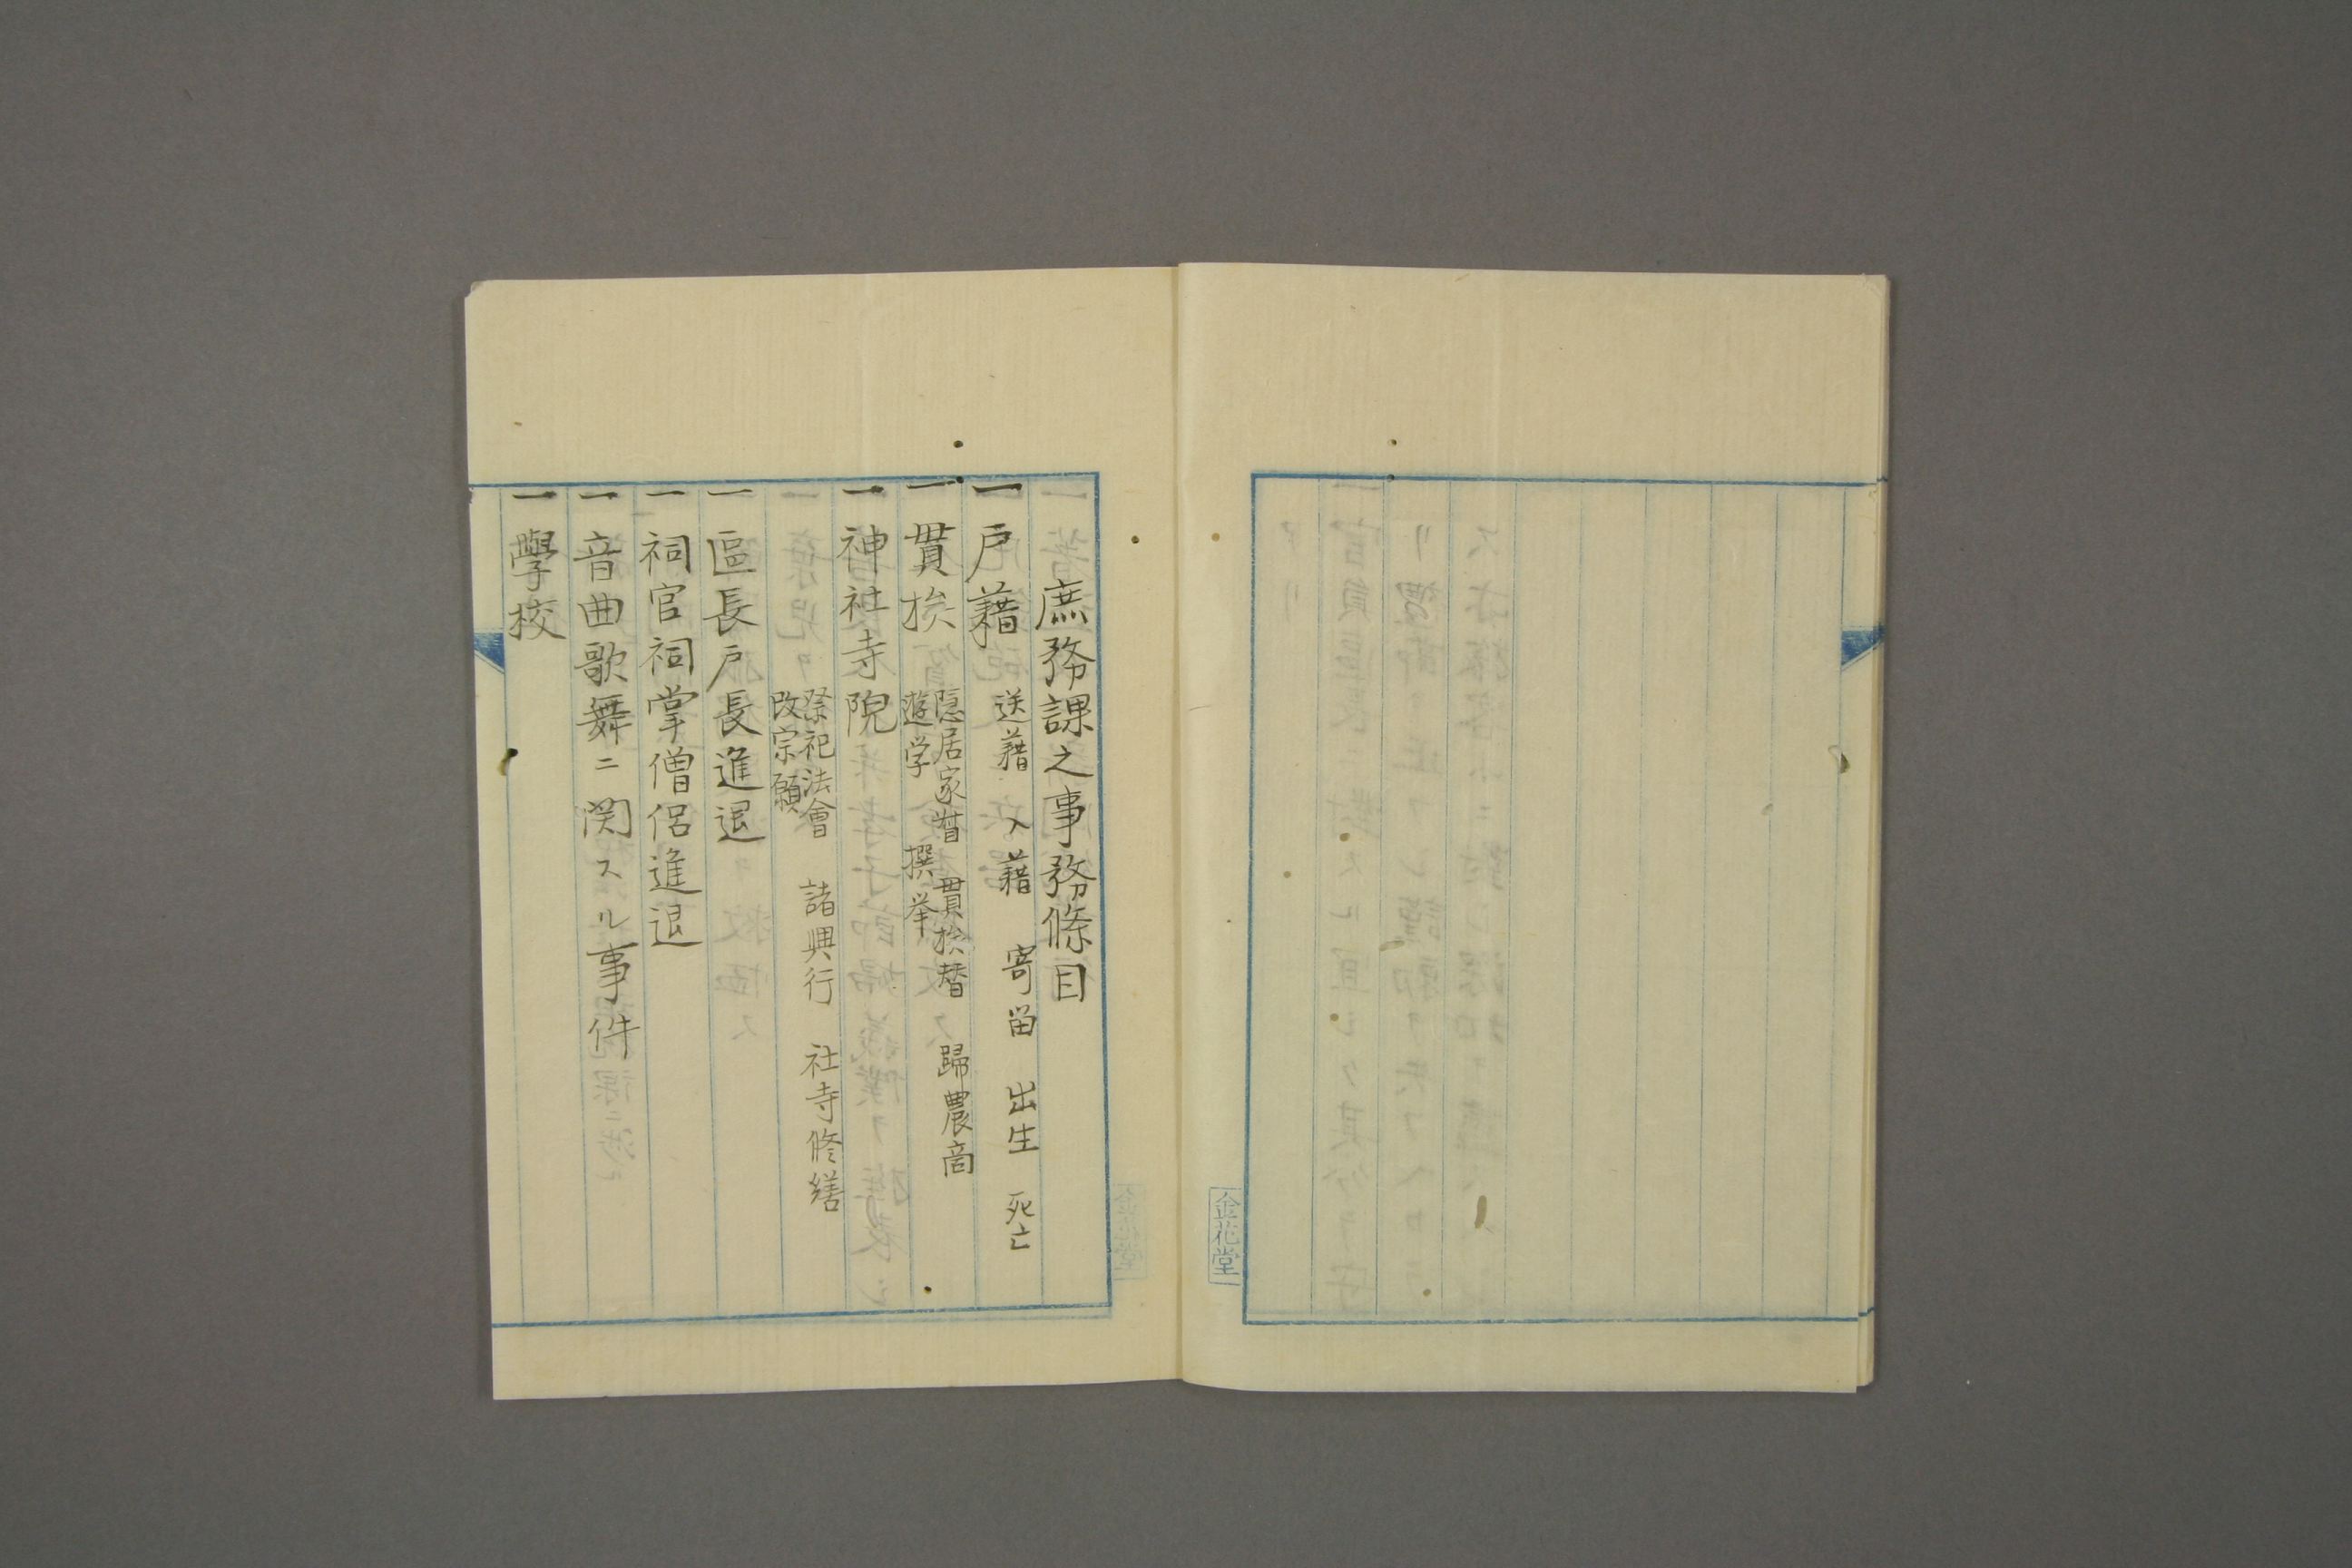 金花堂
庶務課之事務條目
一 戸藉 送藉 入藉 寄留 出生 死亡
一 貫挨 隠居家督 貫挨替 歸農商
遊学 撰挙
一 神社寺院 祭祀法會 諸興行 社寺修繕
改宗願
一 區長戸長進退
一 祠官祠掌僧侶進退
一 音曲歌舞ニ関スル事件
一 學校